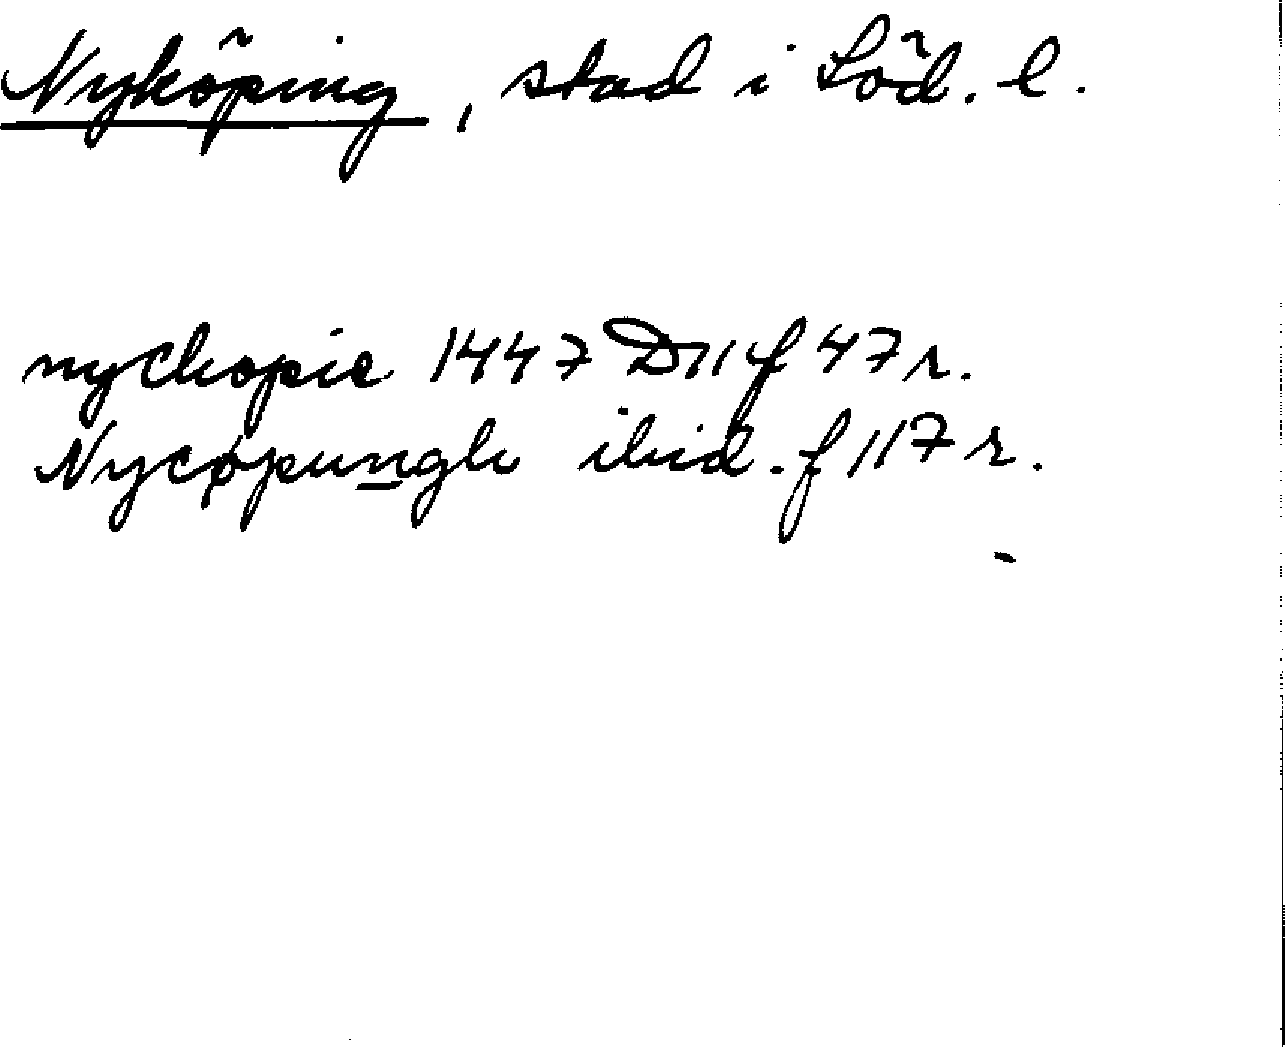 Nyköping, stad i Söd. l.
nyckopie 1447 D11 f 47 r.
Nycøpungh ibid. f 117 r.